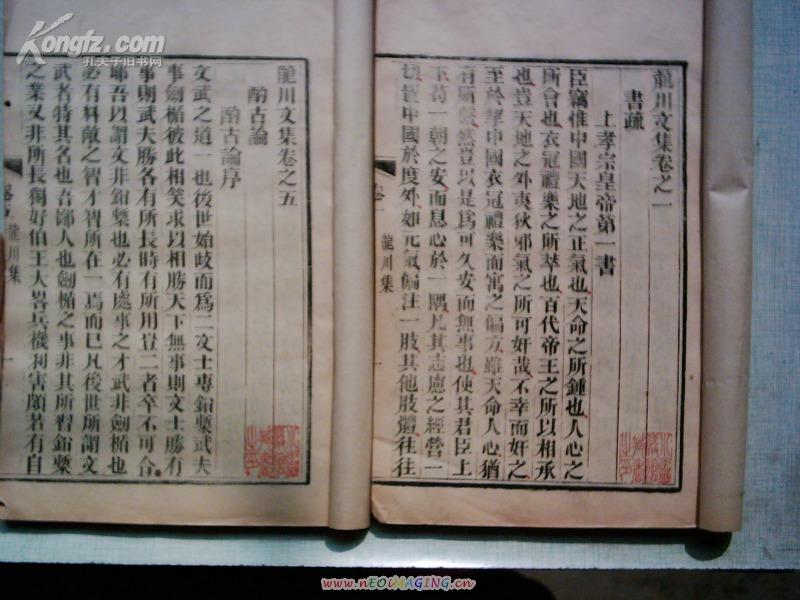 Kongfz.com
孔夫子旧书网
龍川文集卷之一
書疏
上孝宗皇帝第一書
臣竊惟中國天地之正氣也天命之所鍾也人心之
所會也衣冠禮樂之所萃也百代帝王之所以相承
也豈天地之外夷狄邪氣之所可奸哉不幸而奸之
至於挈中國衣冠禮樂而寓之偏方雖天命人心猶
有所繫然豈以是爲可久安而無事也使其君臣上
下苟一朝之安而息心於一隅凡其志慮之經營一
切置中國於度外如元氣偏注一肢其他肢體往往
卷一
龍川集
龍川文集卷之五
酌古論
酌古論序
文武之道一也後世始歧而爲二文士專鉛槧武夫
事劍楯彼此相笑求以相勝天下無事則文士勝有
事則武夫勝各有所長時有所用豈二者卒不可合
耶吾以謂文非鉛槧也必有處事之才武非劍楯也
必有料敵之智才智所在一焉而已凡後世所謂文
武者特其名也吾鄙人也劍楯之事非其所習鉛槧
之業又非所長獨好伯王大畧兵機利害頗若有自
卷五
龍川集
www.nEOiMAGING.cn